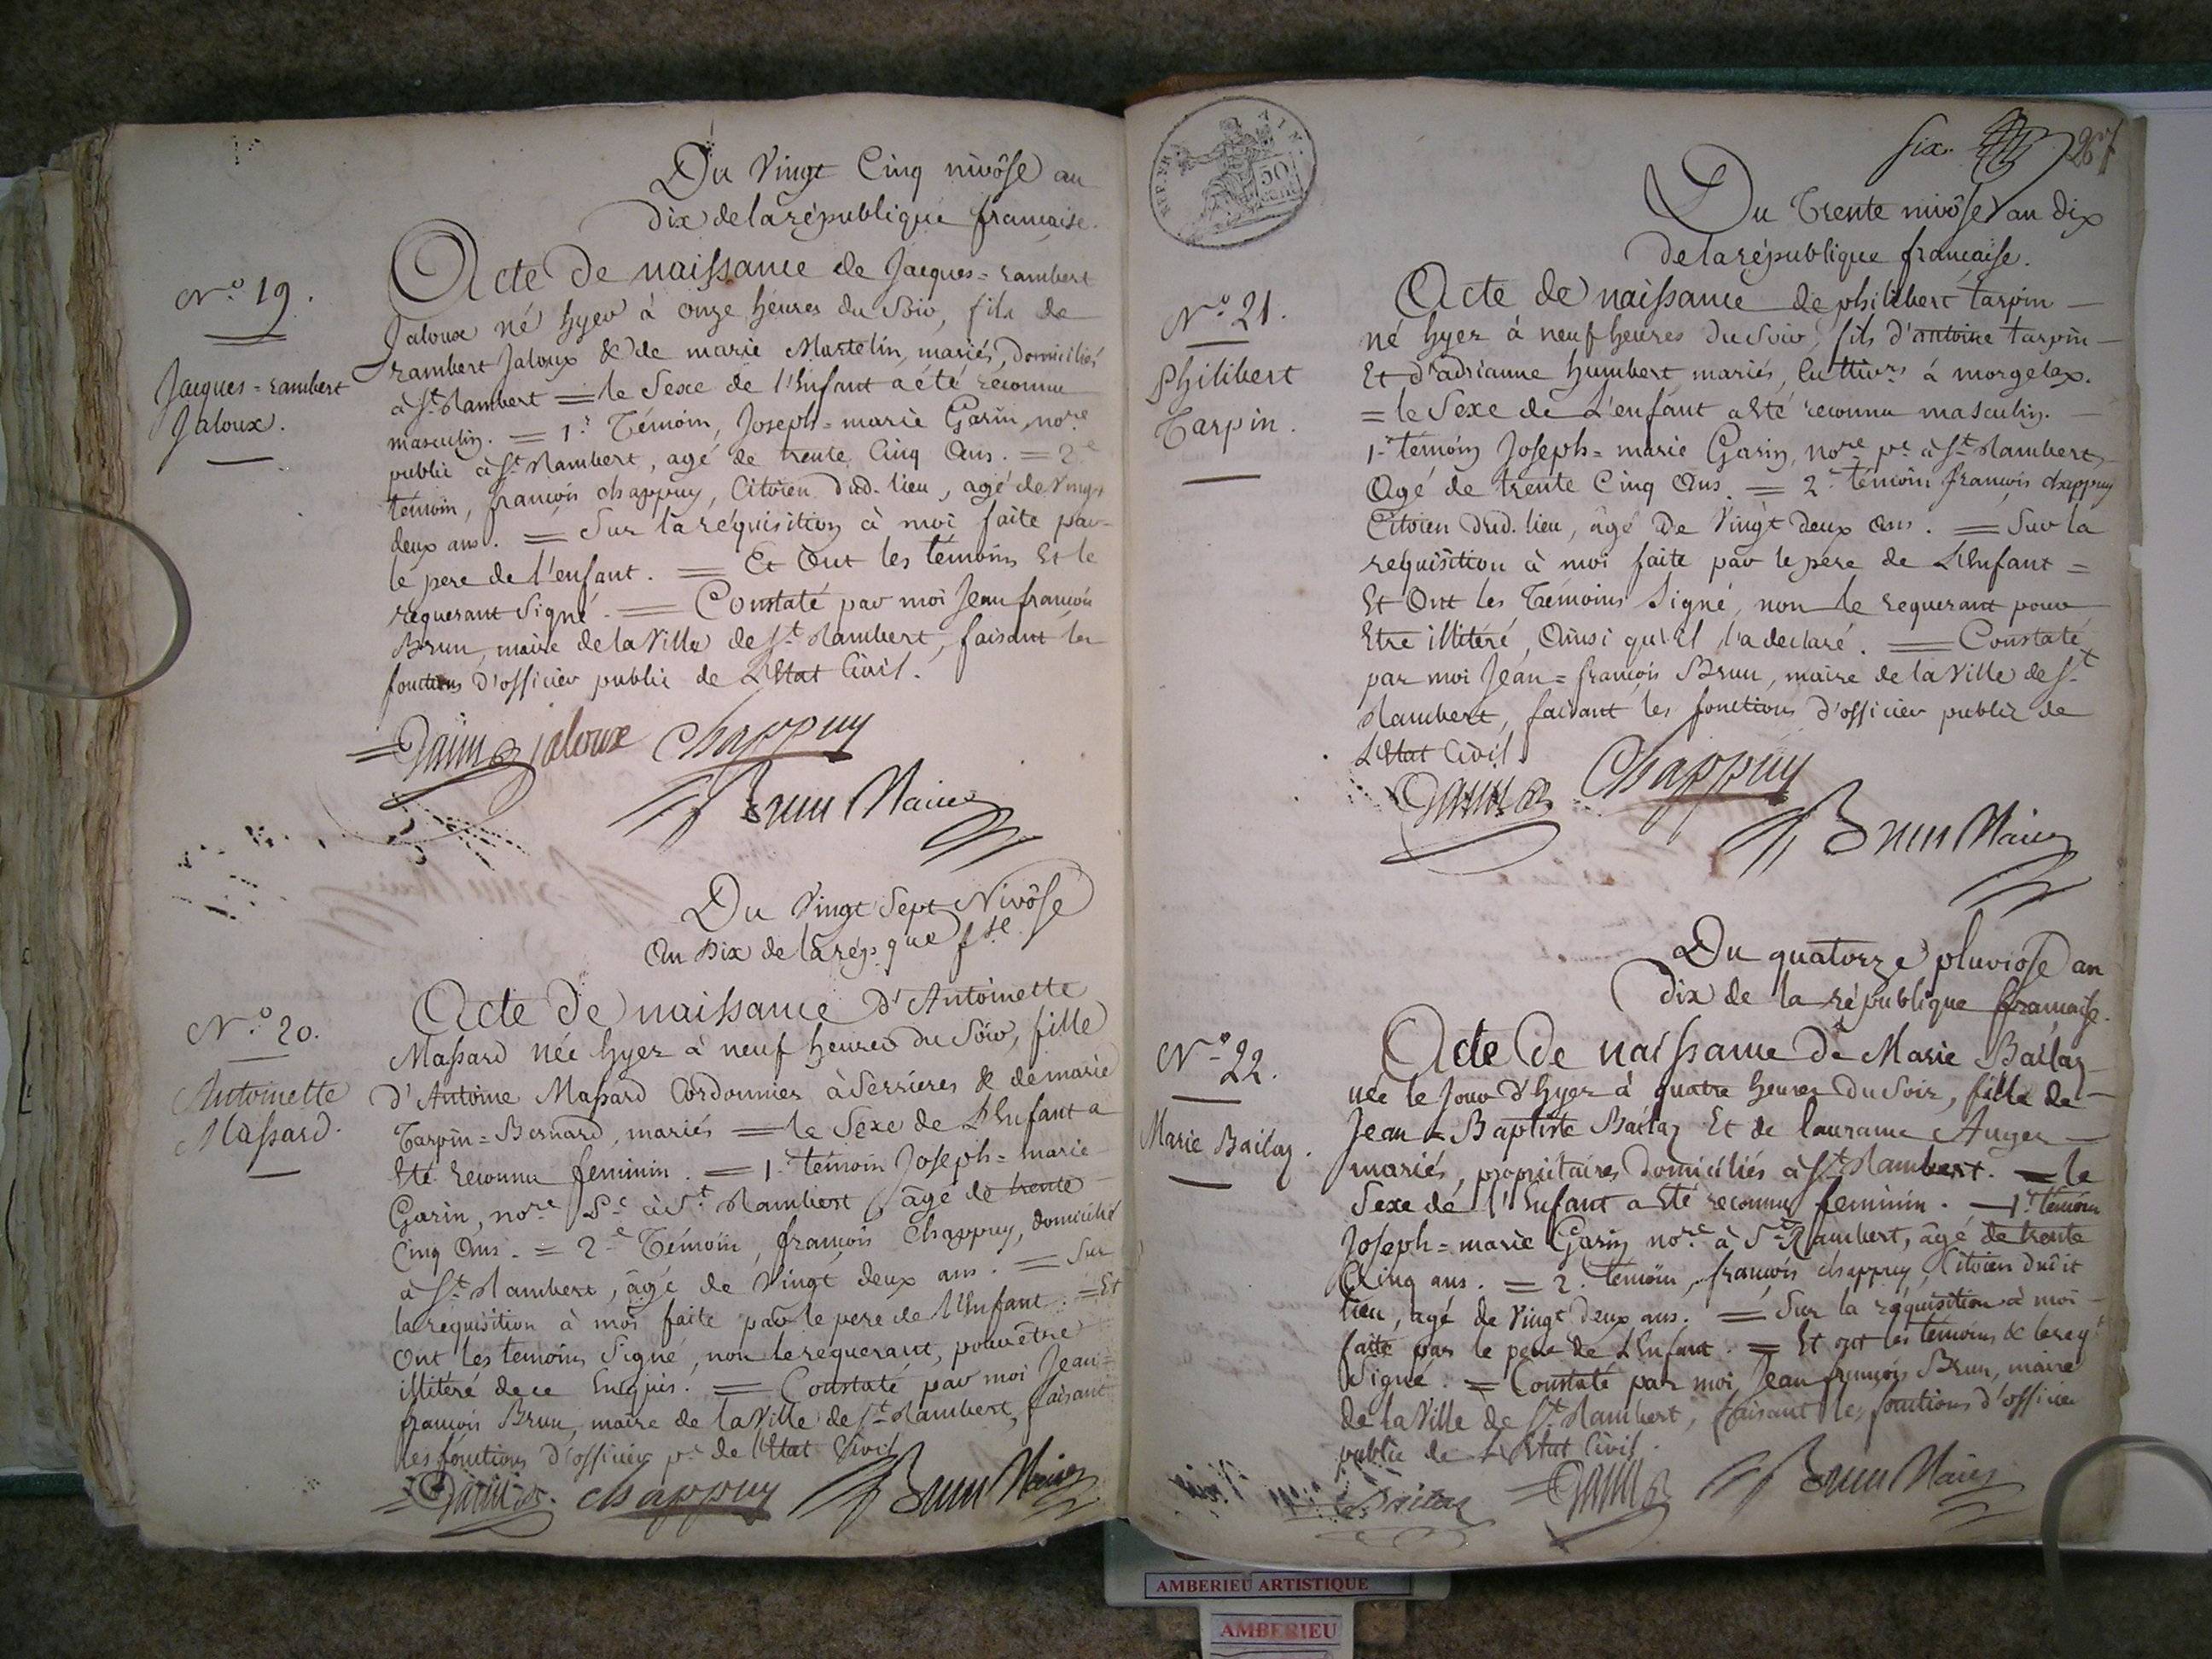 Du Vingt Cinq nivôse an
dix de la république française.
N.º 19.
Jacques = rambert
Jaloux.
Acte de naissance de Jacques = rambert
Jaloux né hyer à onze heures du Soir, fils de
rambert Jaloux & de marie Martelin, mariés, domiciliés
à St. Rambert = le Sexe de l'Enfant a été reconnu
masculin. = 1.r Témoin, Joseph = marie Garin, nore
public à St. Rambert, agé de trente Cinq Ans. = 2.e
témoin, françois chappuy, Citoien dud. lieu, agé de Vingt
deux ans. = Sur la réquisition à moi faite par
le pere de l'enfant. = Et Ont les témoins Et le
requerant Signé. = Constaté par moi Jean françois
Brun, maire de la Ville de St. Rambert, faisant les
fonctions d'officier public de L'Etat Civil.
Garin Jaloux Chappuy
Brun Maire
Du Vingt Sept Nivôse
An Dix de la rép.que fse.
N.º 20.
Antoinette
Massard.
Acte de naissance d'Antoinette
Massard née hyer à neuf heures du Soir, fille
d'Antoine Massard Cordonnier à Serrieres & de marie
Tarpin = Bernard, mariés = le Sexe de L'Enfant a
Eté reconnu feminin. = 1.r témoin Joseph = marie
Garin, nore. Pc. à St. Rambert, âgé de trente
Cinq Ans. = 2.e Témoin, françois Chappuy, domicilié
à St. Rambert, âgé de Vingt deux ans. = Sur
la requisition à moi faite par le pere de L'Enfant. = Et
Ont les temoins Signé, non le requerant, pour être
illitéré de ce Enquis. = Constaté par moi Jean =
françois Brun, maire de la Ville de St. Rambert, faisant
les fonctions d'officier pc. de L'Etat Civil
Garin. chappuy Brun Maire
REP. FRA.
50
six. 267
Du Trente nivôse an dix
de la république française.
N.º 21.
Philibert
Tarpin.
Acte de naissance de philibert tarpin
né hyer à neuf heures du Soir, fils d'antoine tarpin
Et d'adrianne humbert mariés, Cultivrs à morgelax.
= le Sexe de L'enfant a Eté reconnu masculin.
1.r témoin Joseph = marie Garin, nore pc à St. Rambert
Agé de trente Cinq Ans. = 2.e témoin françois chappuy
Citoien dud. lieu, âgé De Vingt deux Ans. = Sur la
requisition à moi faite par le pere de L'Enfant =
Et Ont les Témoins Signé, non le requerant pour
Etre illitéré, Ainsi qu'il l'a declaré. = Constaté
par moi Jean = françois Brun, maire de la Ville de St.
Rambert, faisant les fonctions d'officier public de
L'Etat Civil.
Garin Chappuy
Brun Maire
Du quatorze pluviose an
dix de la république française.
N.º 22.
Marie Bailaz.
Acte de naissance de Marie Bailaz
née le Jour d'hyer à quatre heures du Soir, fille de
Jean = Baptiste Bailaz Et de laurance Auger
mariés, propriétaires domiciliés à St. Rambert. = le
Sexe de l'Enfant a Eté reconnu feminin. 1.r temoin
Joseph = marie Garin nore. à St Rambert, âgé de trente
Cinq ans. = 2. témoin, françois chappuy, Citoien dudit
lieu, agé de Vingt deux ans. = Sur la réquisition à moi
faite par le pere de L'Enfant. = Et ont les témoins & le reqt
Signé. = Constaté par moi Jean françois Brun, maire
de la Ville de St. Rambert, faisant les fonctions d'officier
public de L'Etat Civil.
Bailaz Garin Brun Maire
AMBERIEU ARTISTIQUE
AMBERIEU